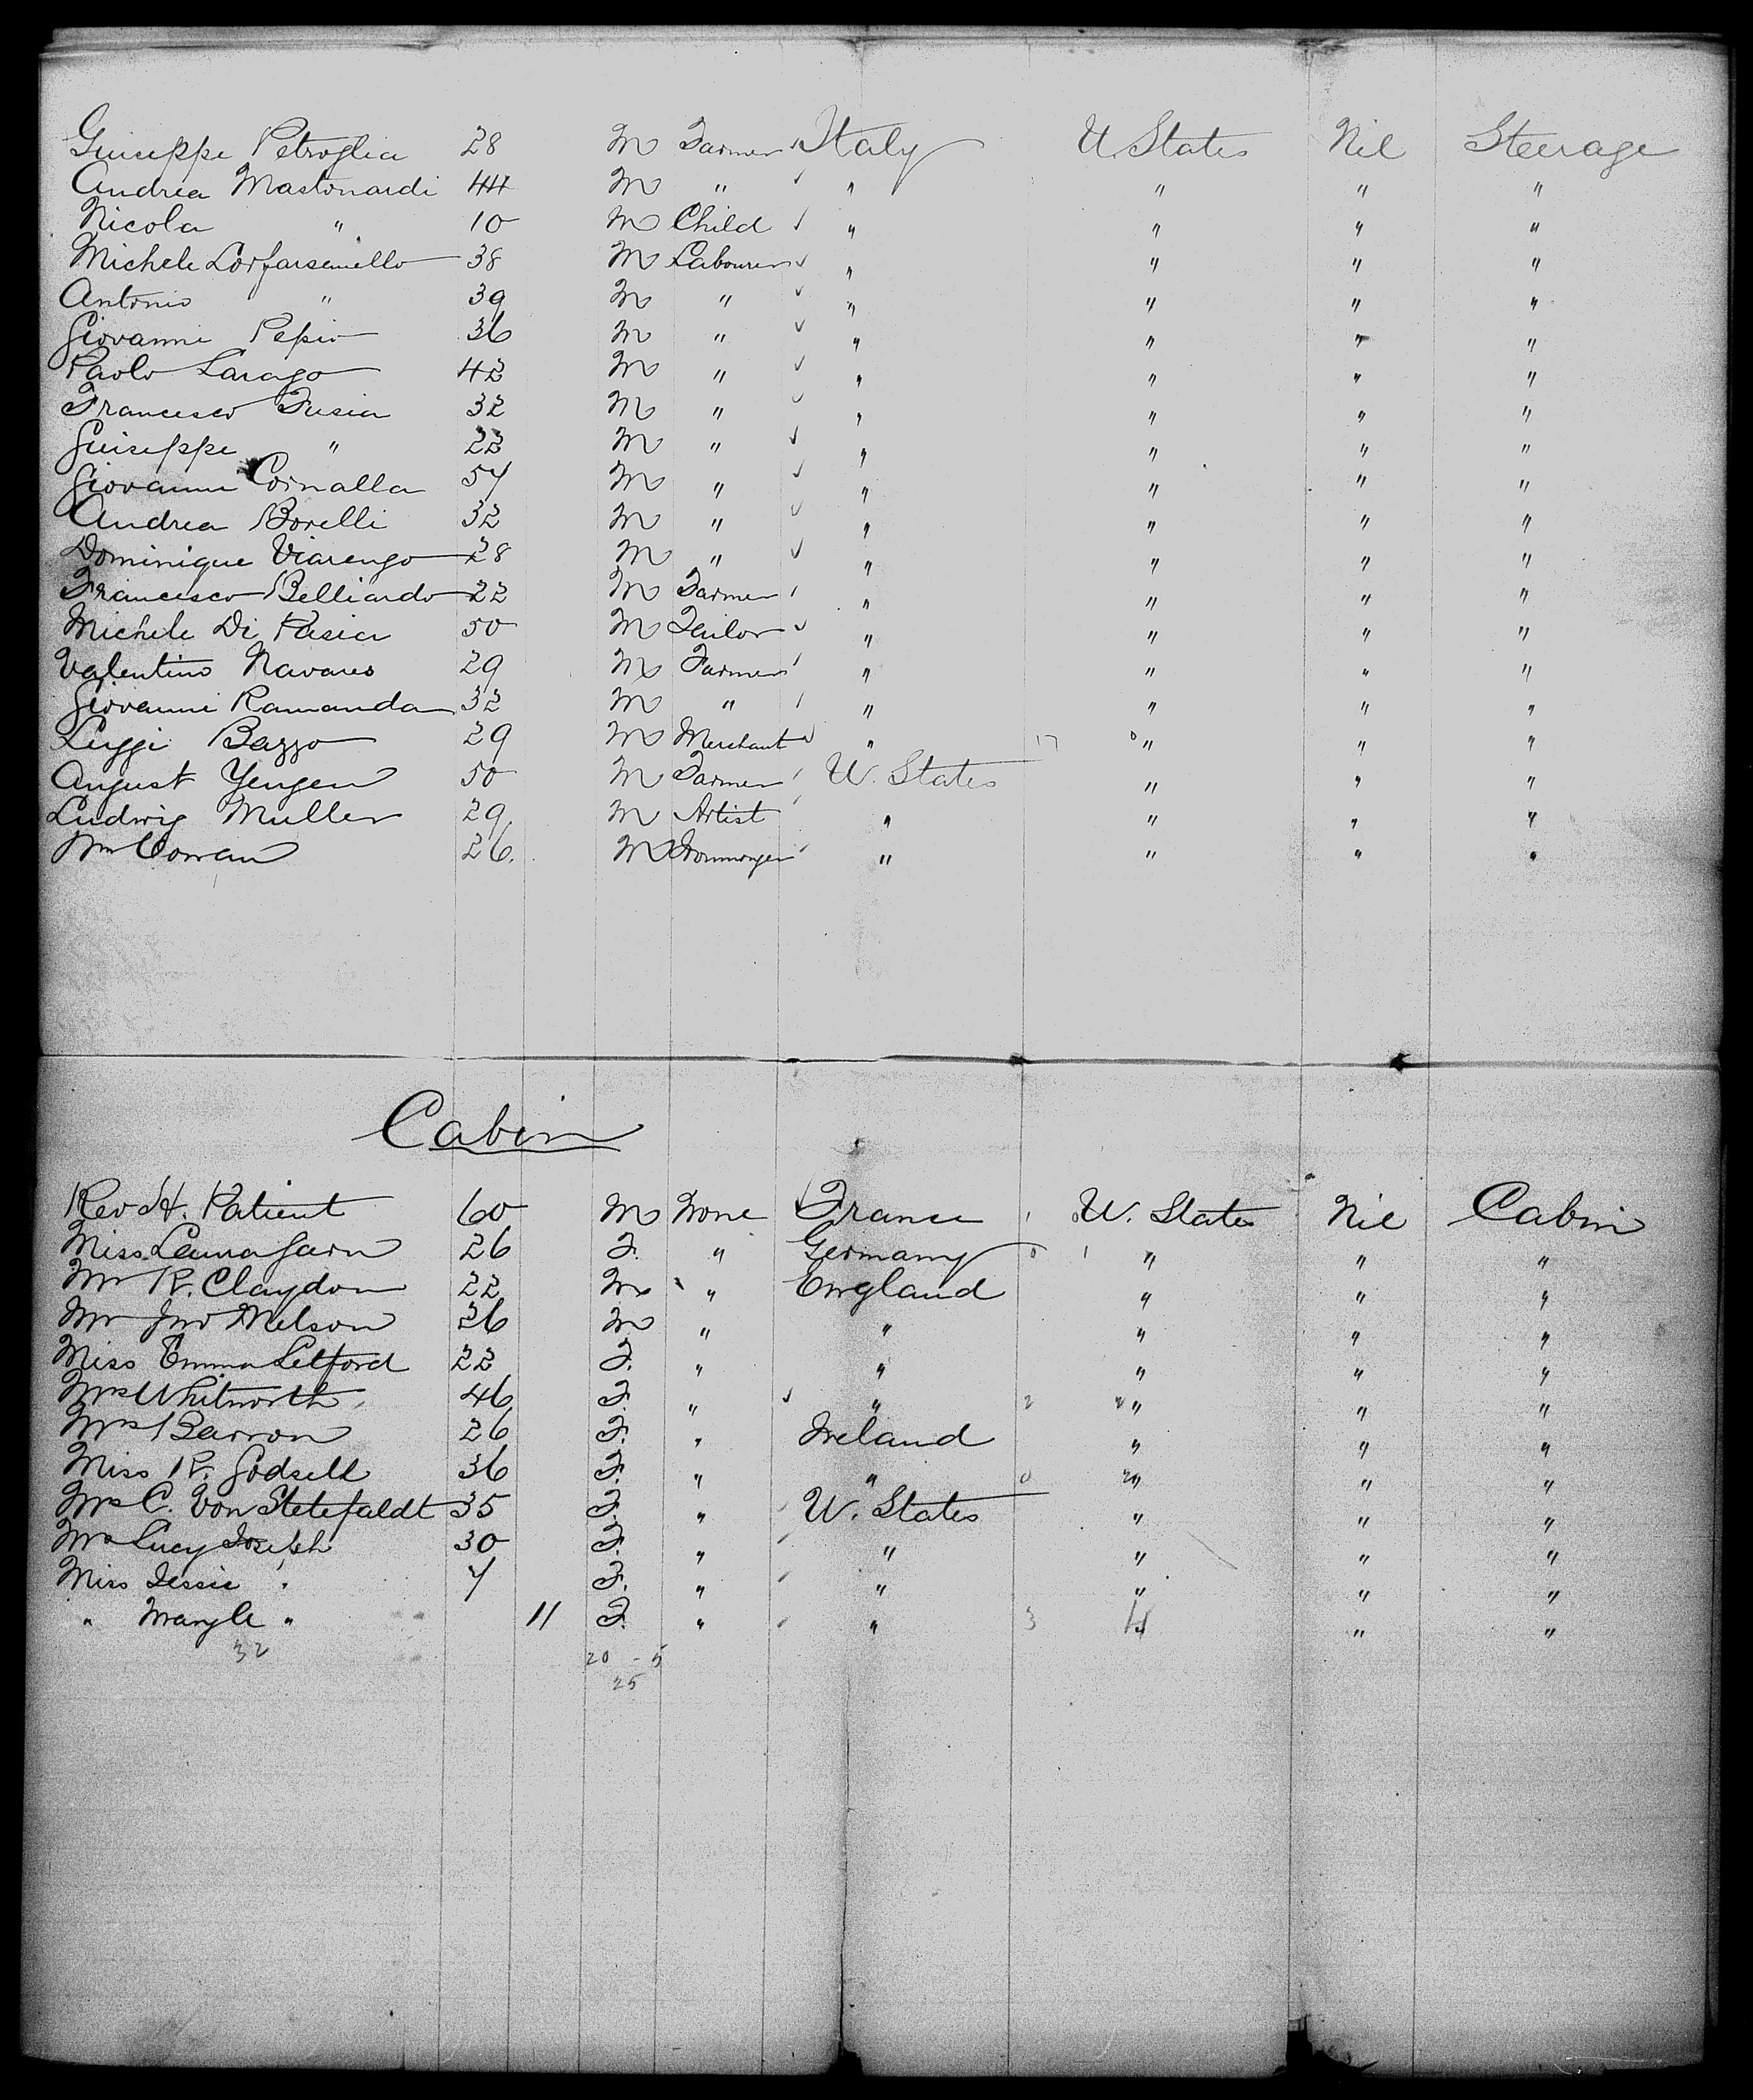 Guiseppe Petroglia 28 M Farmer Italy U States Nil Steerage
Andrea Mastonardi 44 M " " " " "
Nicola " 10 M Child " " " "
Michele 38 M Labourer " " " "
Antonio " 39 M " " " " "
Giovanni Pepio 36 M " " " " "
Paolo Larago 42 M " " " " "
Francesco Fusia 32 M " " " " "
Guiseppe " 22 M " " " " "
Giovanni Cornalla 57 M " " " " "
Andrea Borelli 32 M " " " " "
Dominique Viarengo 28 M " " " " "
Francesco Belliardo 22 M Farmer " " " "
Michele Di Pasia 50 M Tailor " " " "
Valentino Navares 29 M Farmer " " " "
Giovanni Ramanda 32 M " " " " "
Luggi Bazzo 29 M Merchant " 17 0 " " "
August Yengen 50 M Farmer U. States " " "
Ludwig Muller 29. M Artist " " " "
Wm Cowan 26. M Ironmonger " " " "
Cabin
Rev H. Patient 60 M None France 1 0 U. States Nil Cabin
Miss Laura Garn 26 F. " Germany 0 1 " " "
Mr R. Claydon 22 M " England " " "
Mr Jno Melson 26 M " " " " "
Miss Emma Letford 22 F. " " " " "
Mrs Whitworth 46 F. " " 2 2 " " "
Mrs Barron 26 F. " Ireland " " "
Miss R. Godsell 36 F. " " 0 2 " " "
Mrs C. Von Stetefaldt 35 F. " U. States " " "
Mrs Lucy Joseph 30 F. " " " " "
Miss Jessie " 7 F. " " " " "
" " 11 F. " " 3 " "
32 20 - 5
25